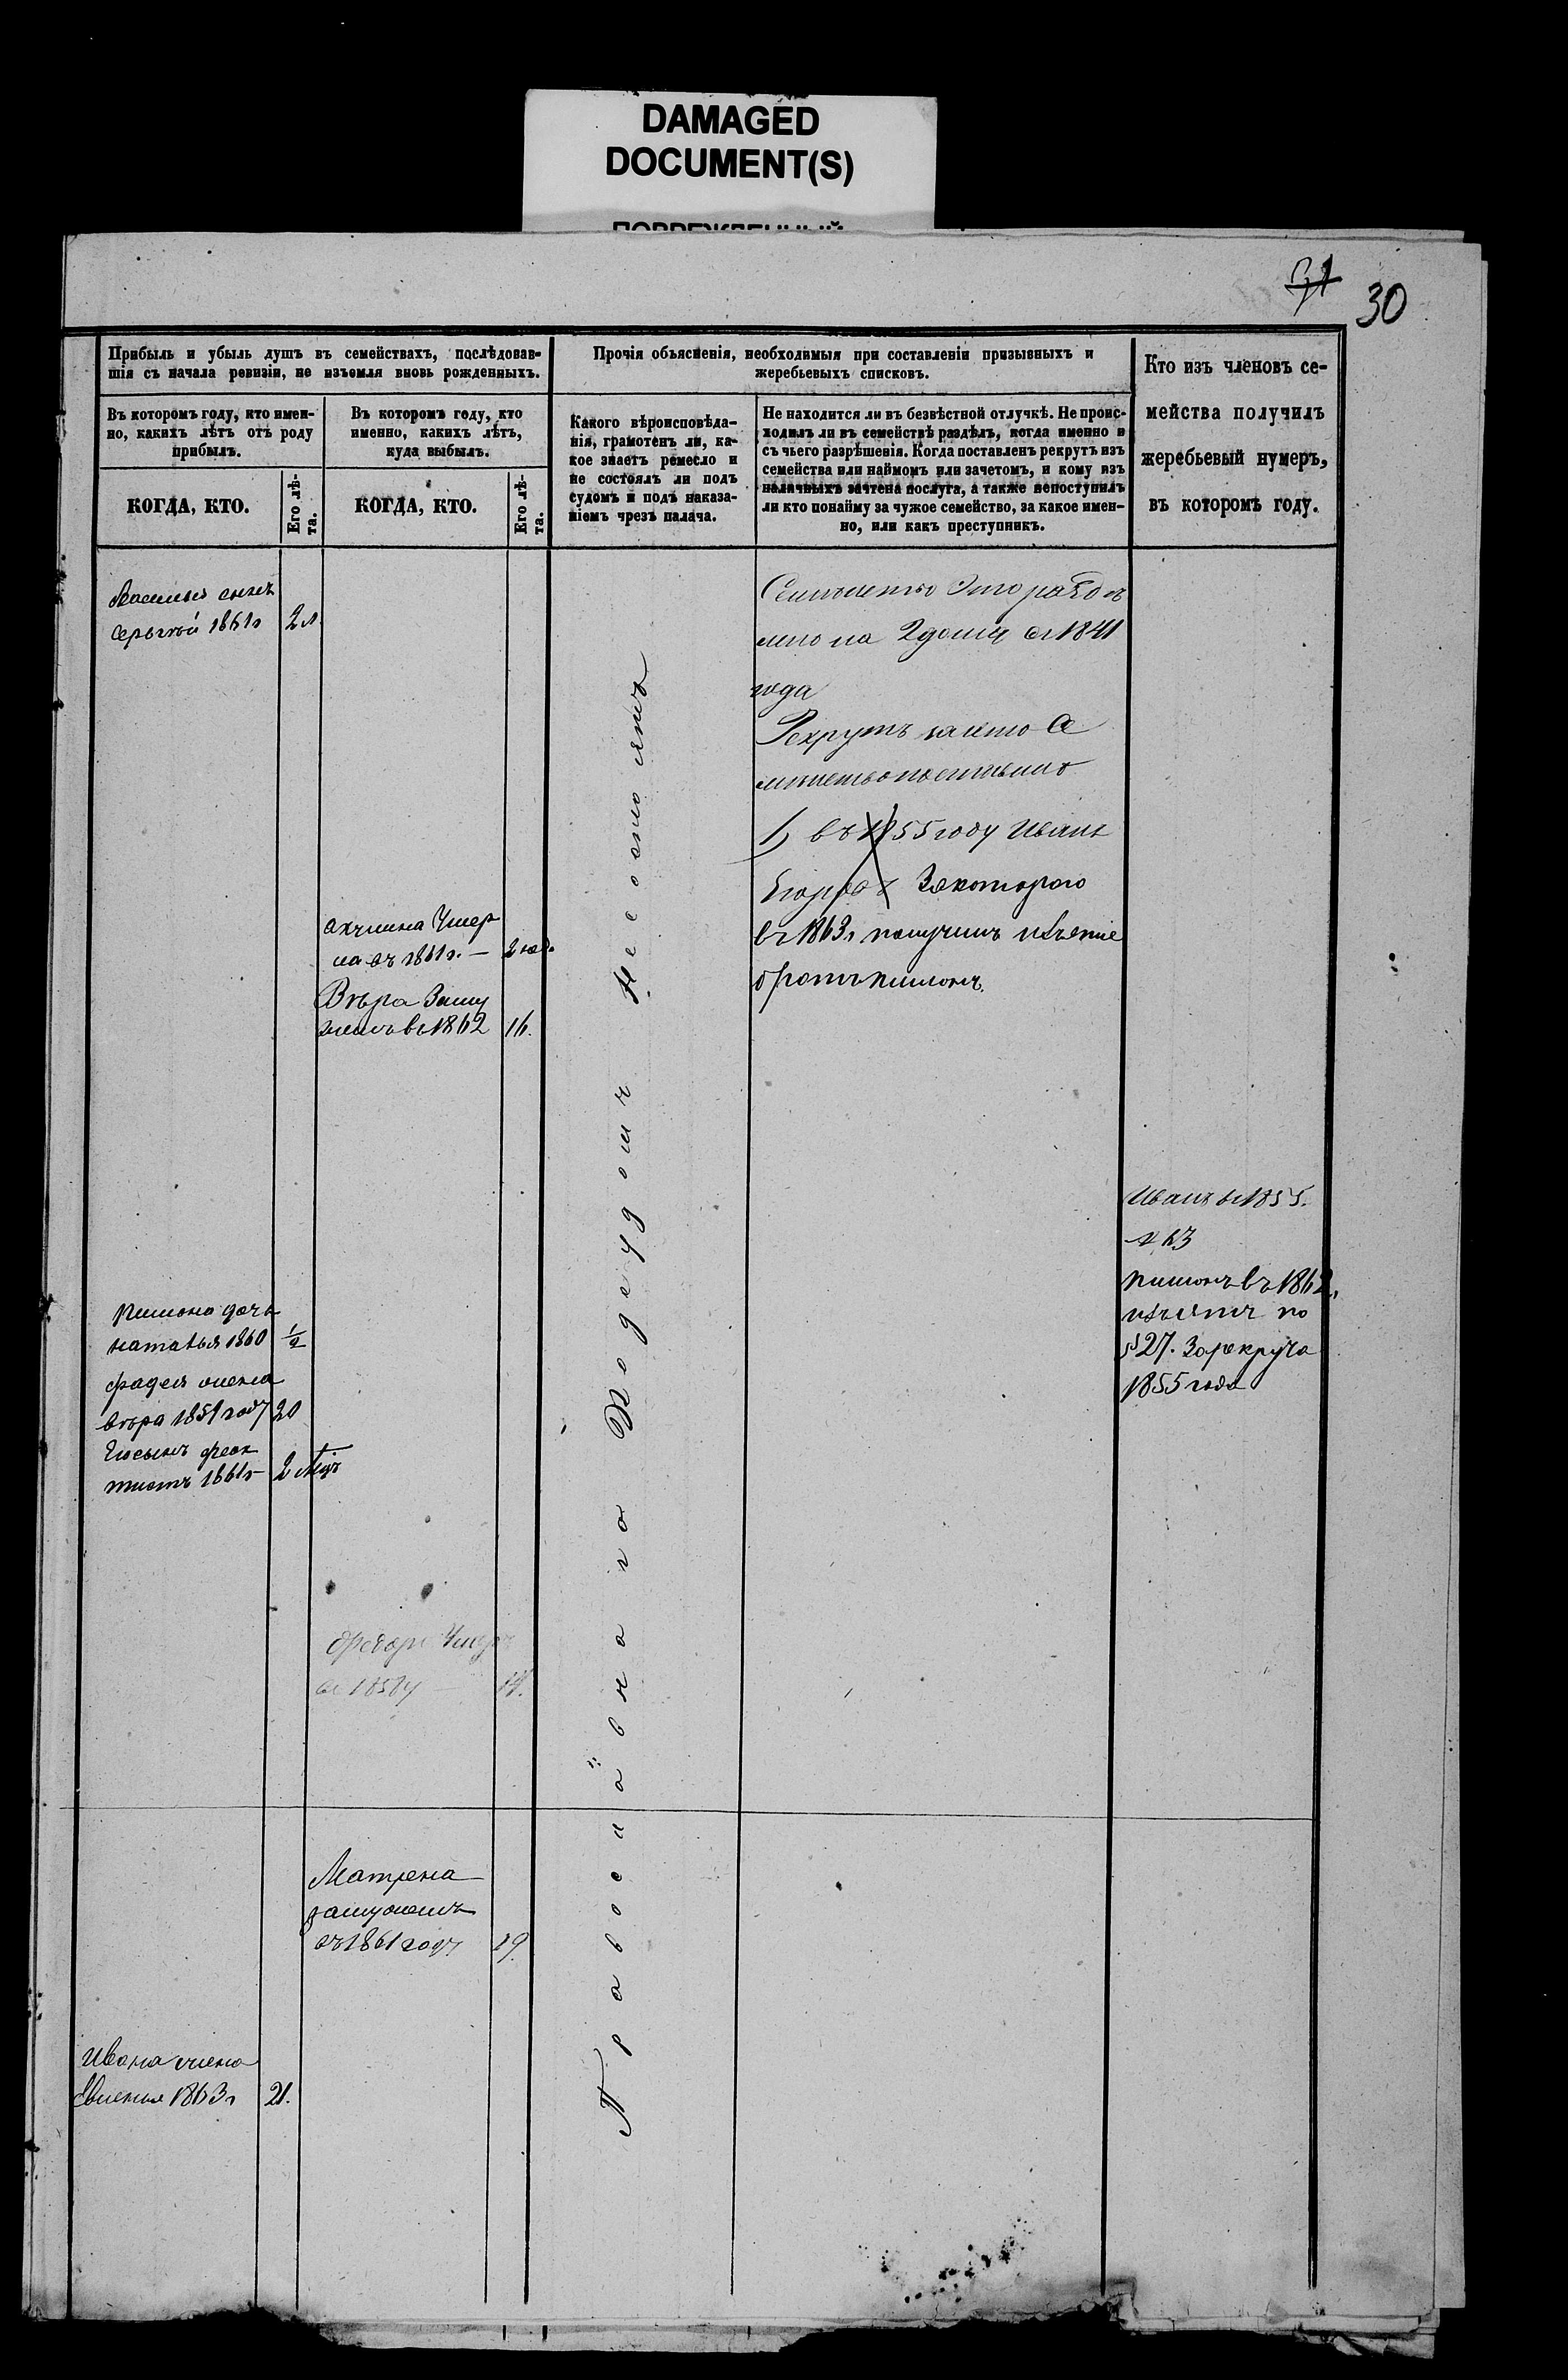 DAMAGED
DOCUMENT(S)
ПОВРЕЖДЕННЫЙ
31
30
Прибыль и убыль душъ въ семействахъ, послѣдовав-
шія съ начала ревизіи, не изъемля вновь рожденныхъ.
Прочія объясненія, необходимыя при составленіи призывныхъ и
жеребьевыхъ списковъ.
Кто изъ членовъ се-
мейства получилъ
жеребьевый нумеръ,
въ которомъ году.
Въ которомъ году, кто имен-
но, какихъ лѣтъ отъ роду
прибылъ.
Въ которомъ году, кто
именно, какихъ лѣтъ,
куда выбылъ.
Какого вѣроисповѣда-
нія, грамотенъ ли, ка-
кое знаетъ ремесло и
не состоялъ ли подъ
судомъ и подъ наказа-
ніемъ чрезъ палача.
Не находится ли въ безвѣстной отлучкѣ. Не проис-
ходилъ ли въ семействѣ раздѣлъ, когда именно и
съ чьего разрѣшенія. Когда поставленъ рекрутъ изъ
семейства или наймомъ или зачетомъ, и кому изъ
наличныхъ зачтена послуга, а также непоступилъ
ли кто понайму за чужое семейство, за какое имен-
но, или какъ преступникъ.
КОГДА, КТО.
Его лѣ-
та.
КОГДА, КТО.
Его лѣ-
та.
Василья сынъ
Сергѣй 1861г 2 л.
Семѣйство Это раздѣ
лено на 2 доми въ 1841
года
Рекрутъ
1) въ 1855 году Иванъ
Егоровъ За котораго
въ 1863г получилъ изъятіе
братъ пимонъ.
Акулина Умер
ла въ 1861г. — 2 год.
Вѣра Заму
жемъ въ 1862 16.
Православнаго Подсудомъ Несостоятъ
Иванъ въ 1855.
№ 63
пимонъ въ 1862.
изъятъ по
§ 27. За рекрута
1855 года
Пимона дочь
наталья 1860 ½
фадея жена
вѣра 1859 году 20
Его сынъ феок
тистъ 1861г 2 мѣц
Умеръ
Матрена
замужемъ
въ 1861 году 19.
Ивана жена
1863г 21.